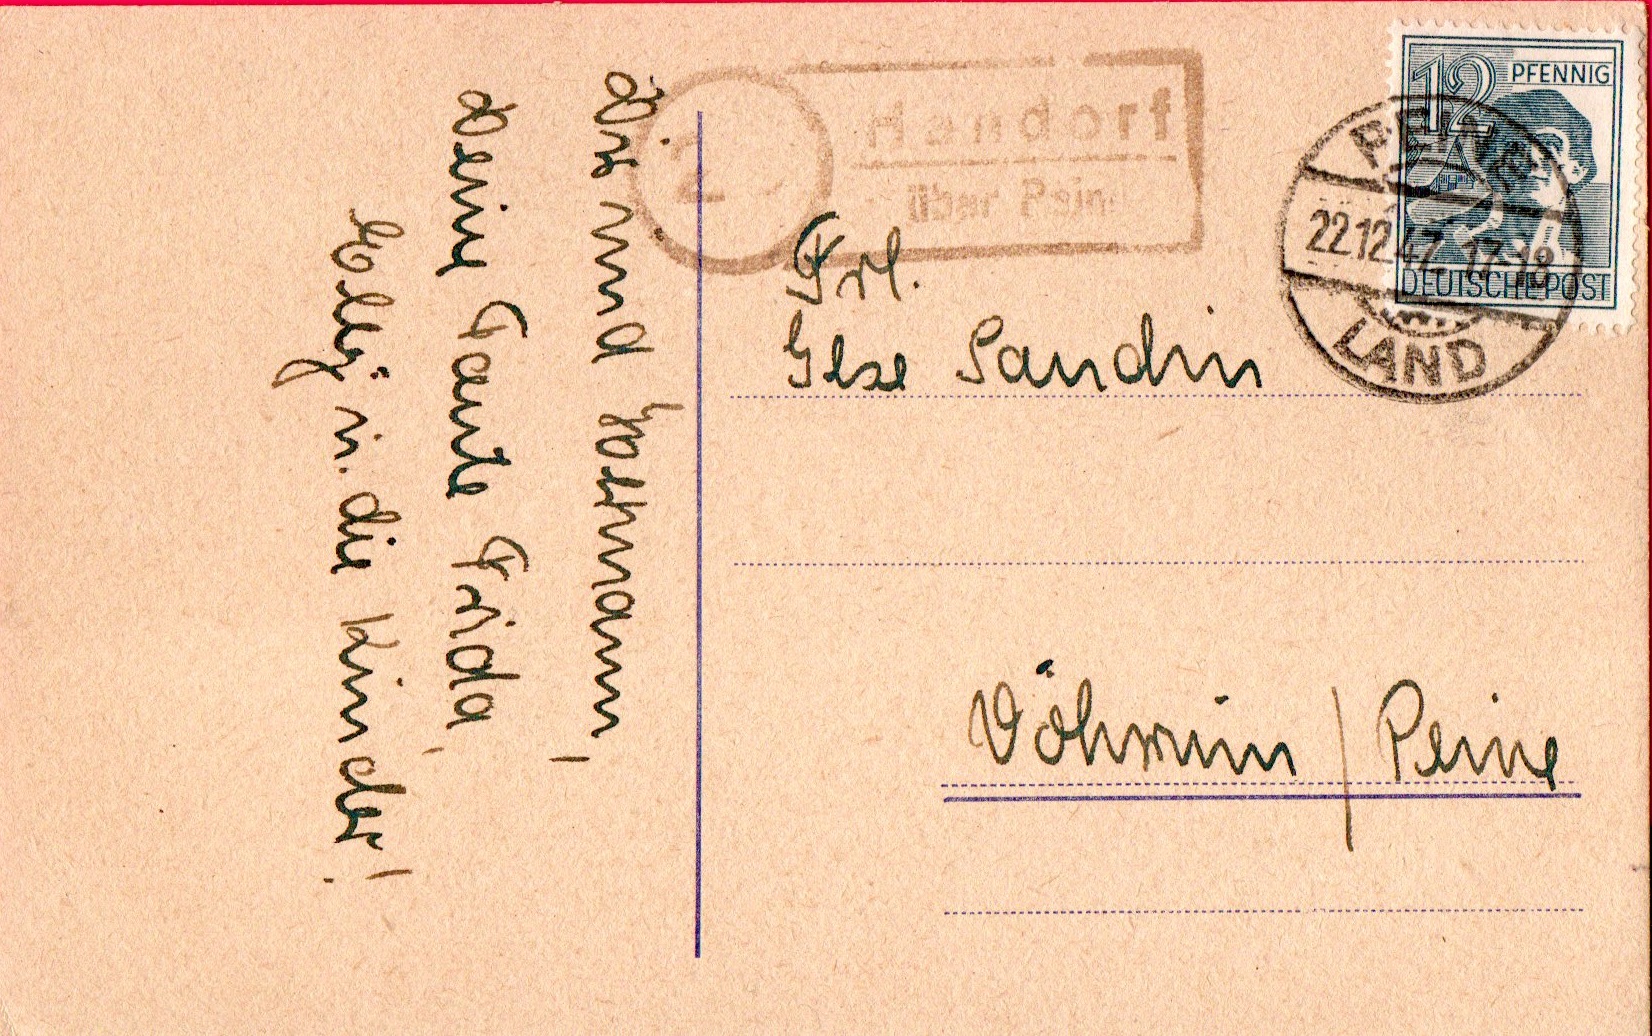 12 PFENNIG
DEUTSCHE POST
PEINE
22.12.47.17-18
LAND
2
Handorf
über Pein
Frl.
Ilse Sandin
Vöhrum / Peine
Dir und Hermann,
Deine Tante Frida,
Helly u. die Kinder!